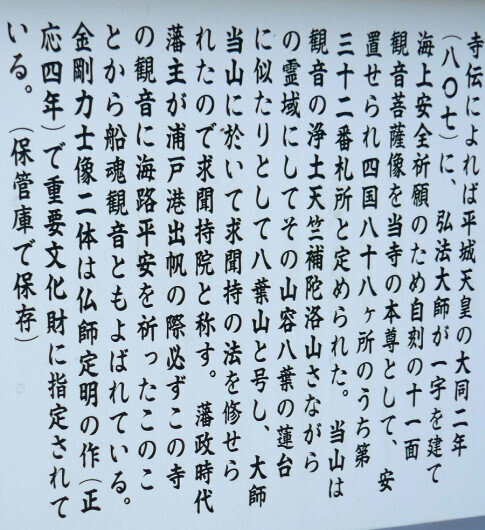 寺伝によれば平城天皇の大同二年
(八〇七)に、弘法大師が一宇を建て
海上安全祈願のため自刻の十一面
観音菩薩像を当寺の本尊として、安
置せられ四国八十八ヶ所のうち第
三十二番札所と定められた。当山は
観音の浄土天竺補陀洛山さながら
の霊域にしてその山容八葉の蓮台
に似たりとして八葉山と号し、大師
当山に於いて求聞持の法を修せら
れたので求聞持院と称す。藩政時代
藩主が浦戸港出帆の際必ずこの寺
の観音に海路平安を祈ったこのこ
とから船魂観音ともよばれている。
金剛力士像二体は仏師定明の作(正
応四年)で重要文化財に指定されて
いる。(保管庫で保存)